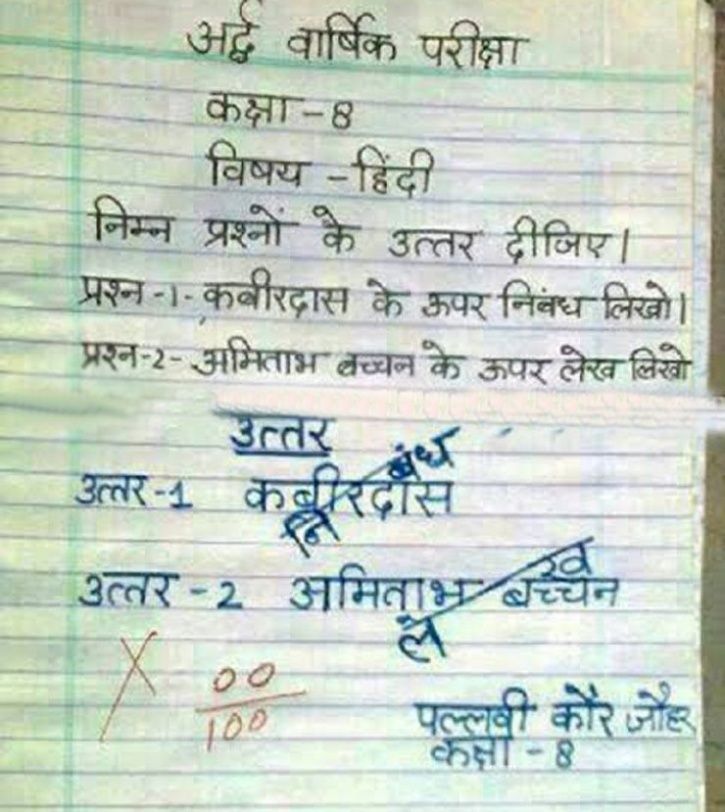 अर्द्ध वार्षिक परीक्षा
कक्षा - 8
विषय - हिंदी
निम्न प्रश्नों के उत्तर दीजिए।
प्रश्न -1- कबीरदास के ऊपर निबंध लिखो।
प्रश्न-2- अमिताभ बच्चन के ऊपर लेख लिखो
उत्तर
बंध
उत्तर-1 कबीरदास
नि
ख
उत्तर - 2 अमिताभ बच्चन
ले
X 00
100
पल्लवी कौर जौहर
कक्षा - 8